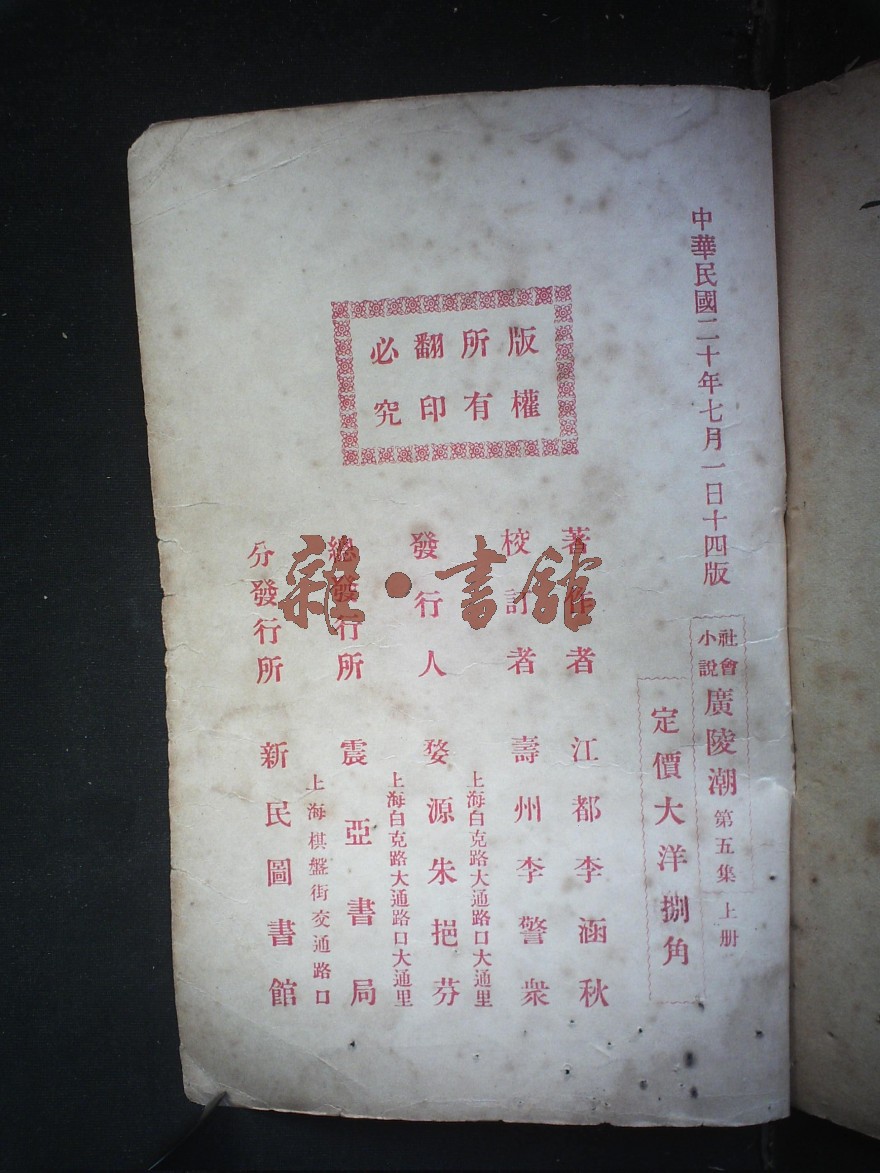 中華民國二十年七月一日十四版
社會小說
廣陵潮
第五集
上册
定價大洋捌角
版權
所有
翻印
必究
著作者 江都李涵秋
校訂者 壽州李警衆
上海白克路大通路口大通里
發行人 婺源朱挹芬
上海白克路大通路口大通里
總發行所 震亞書局
上海棋盤街交通路口
分發行所 新民圖書館
雜·書館